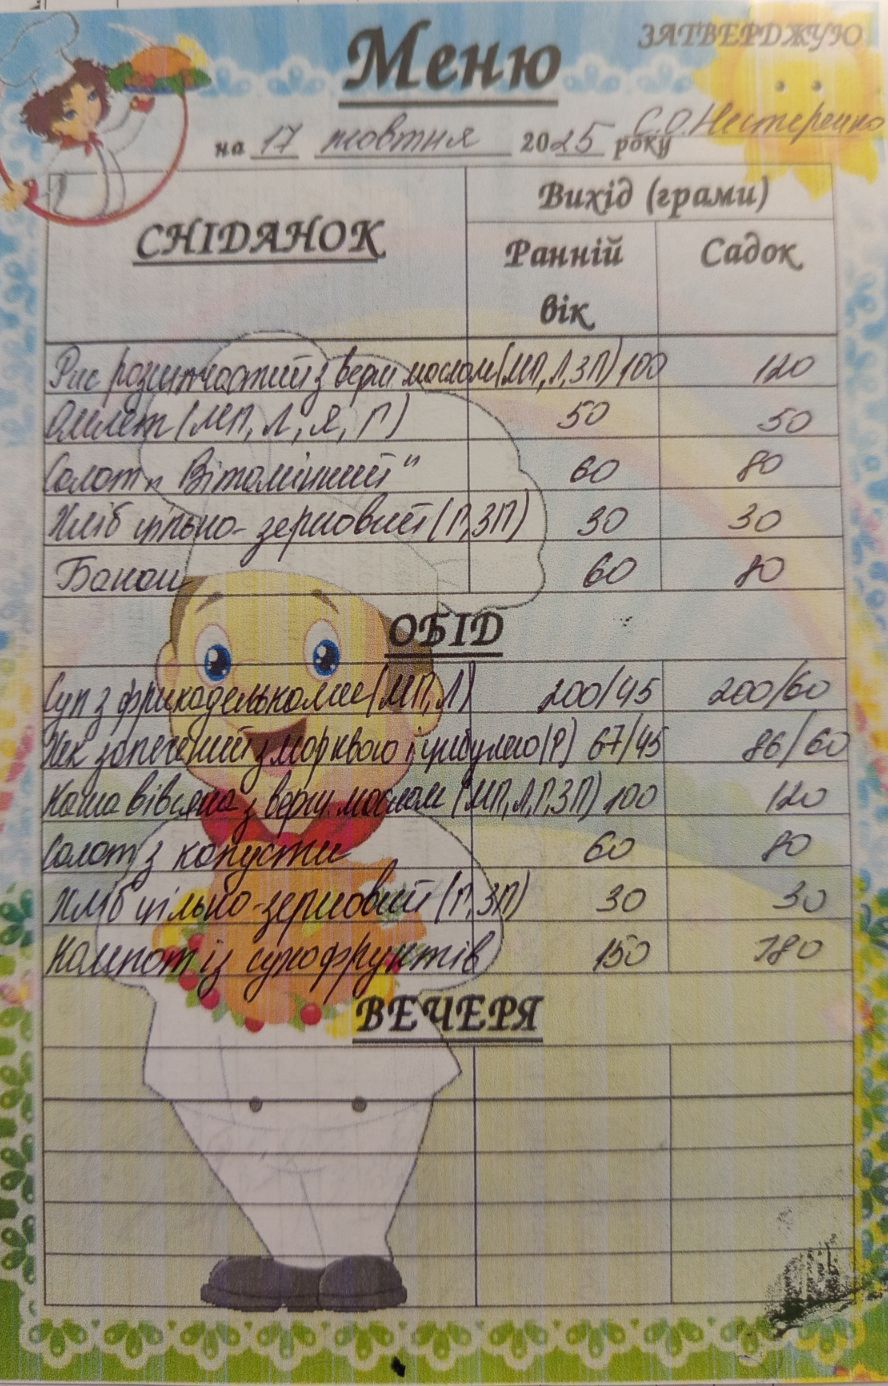 Меню
ЗАТВЕРДЖУЮ
на 17 жовтня 2025 року С.О.Нестеренко
СНІДАНОК
Вихід (грами)
Ранній вік
Садок
Рис розсипчастий з верш маслом (МП, Л, ЗП) 100 120
Омлет (МП, Л, Я, Г) 50 50
Салат „Вітамінний" 60 80
Хліб цільно-зерновий (Г, ЗП) 30 30
Банан 60 80
ОБІД
Суп з фрикадельками (МП, Л) 200/45 200/60
Хек запечений з морквою і цибулею (Р) 67/45 86/60
Каша вівсяна з верш. маслом (МП, Л, Г, ЗП) 100 120
Салат з капусти 60 80
Хліб цільно-зерновий (Г, ЗП) 30 30
Компот із сухофруктів 150 180
ВЕЧЕРЯ